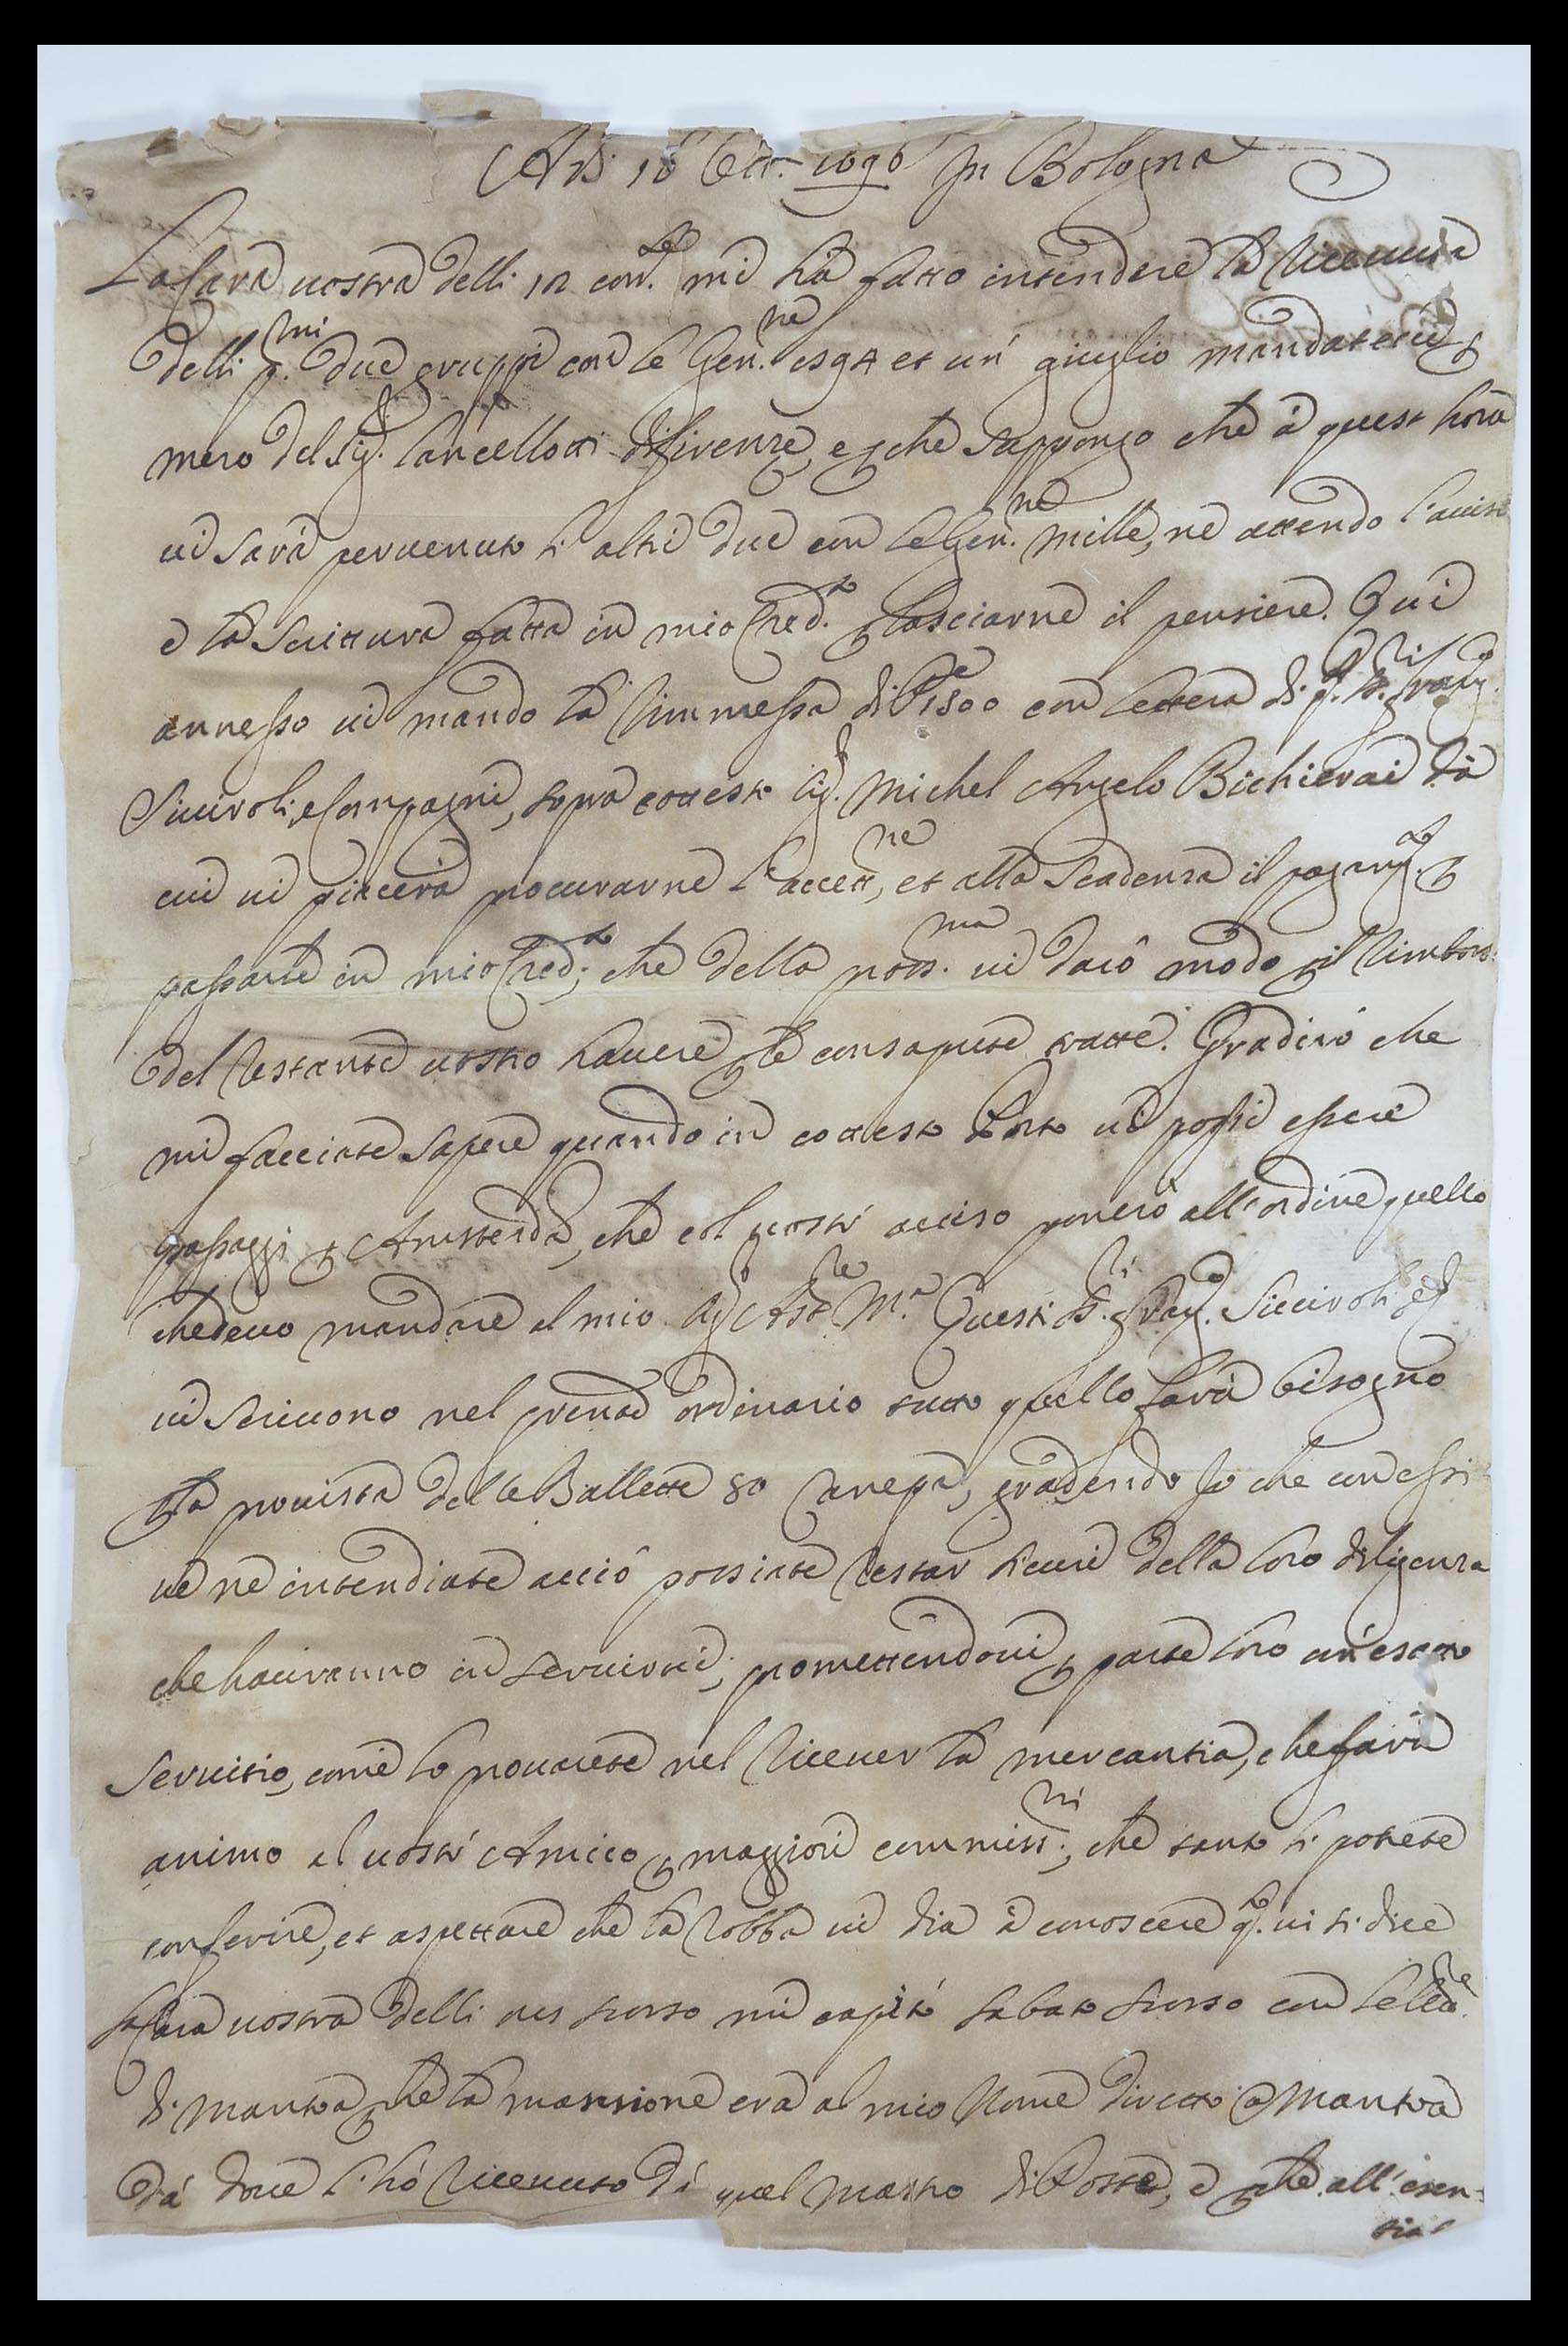 Adi 18 Ottr. 1696 In Bologna
La Cara vostra delli 12 corr.te mi hà fatto intendere la riceuuta
delli p.mi due gruppi con le Gen.ne et un' giuglio mandateui p
mezo del Sig.r Lancellotti di firenze, e p che suppongo che à quest' hora
ui sarà peruenuto li altri due con le Gen.ne mille, ne attendo l'auiso
e la scrittura fatta in mio Cred.to p lasciarne il pensiere. Qui
annesso ui mando la rimmessa di P.e 1500 con lettera di q.ti ss.ri franc.o
Sicciroli, e Compagni, sopra cotesto Sig.r Michel Angelo Bichierai dà
cui ui piacerà procurarne l'accett.ne, et alla scadenza il pagam.to p
passarle in mio Cred.to; che della pross.ma ui darò modo p il rimbors:
del restante uostro hauere p le consapute tratte. Gradirò che
mi facciate sapere quando in cotesto Porto ui possi essere
passaggi p Amsterda, che col uostr' auiso ponerò all'ordine quello
che deuo mandare al mio Sig.r Ast.re M.a Questi ss.ri franc.o Sicciroli e C
ui scriuono nel preñte ordinario tutto quello sarà bisogno
p la prouista delle Ballette 80 Canepa, gradendo Io che con essi
ue ne intendiate acciò possiate restar sicuri della loro diligenza
che hauranno in seruirui; promettendoui p parte loro un' esatto
seruitio, come lo prouarete nel riceuer la mercantia, che farà
animo al uostr' Amico p maggiori commiss.ni; che tanto li potrete
conferire, et aspettare che la robba ui dia à conoscere q.to ui si dice
La Cara uostra delli scorso mi capitò sabato scorso con le l.re
di Mantoa p che la mansione era al mio Nome diretto a Mantoa
dà doue l'hò riceuuto dà quel Mastro di Poste, e p che all' esen=
tia